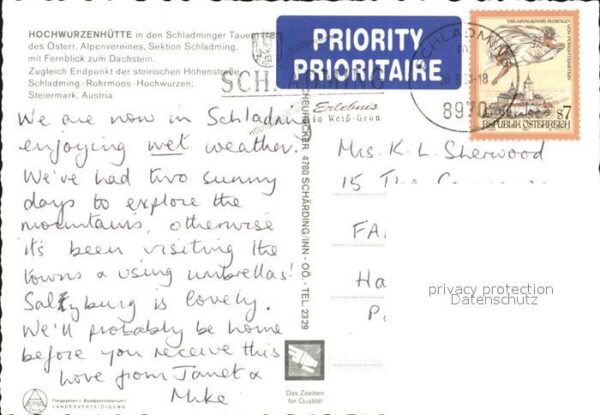 HOCHWURZENHÜTTE in den Schladminger Tauern (18
des Österr. Alpenvereines, Sektion Schladming,
mit Fernblick zum Dachstein.
Zugleich Endpunkt der steirischen Höhenstraße
Schladming - Rohrmoos - Hochwurzen;
Steiermark, Austria
PRIORITY
PRIORITAIRE
SCHLADMING
Erlebnis
in Weiß-Grün
SCHLADMING
8970
S7
REPUBLIK ÖSTERREICH
We are now in Schladming
enjoying wet weather.
We've had two sunny
days to explore the
mountains, otherwise
it's been visiting the
towns & using umbrellas!
Salzburg is lovely.
We'll probably be home
before you receive this
Love from Janet &
Mike
4780 SCHÄRDING/INN - OÖ. - TEL. 2329
Mrs. K. L. Sherwood
15 The
FA
Ha
privacy protection
Datenschutz
Das Zeichen
für Qualität
LANDESVERTEIDIGUNG